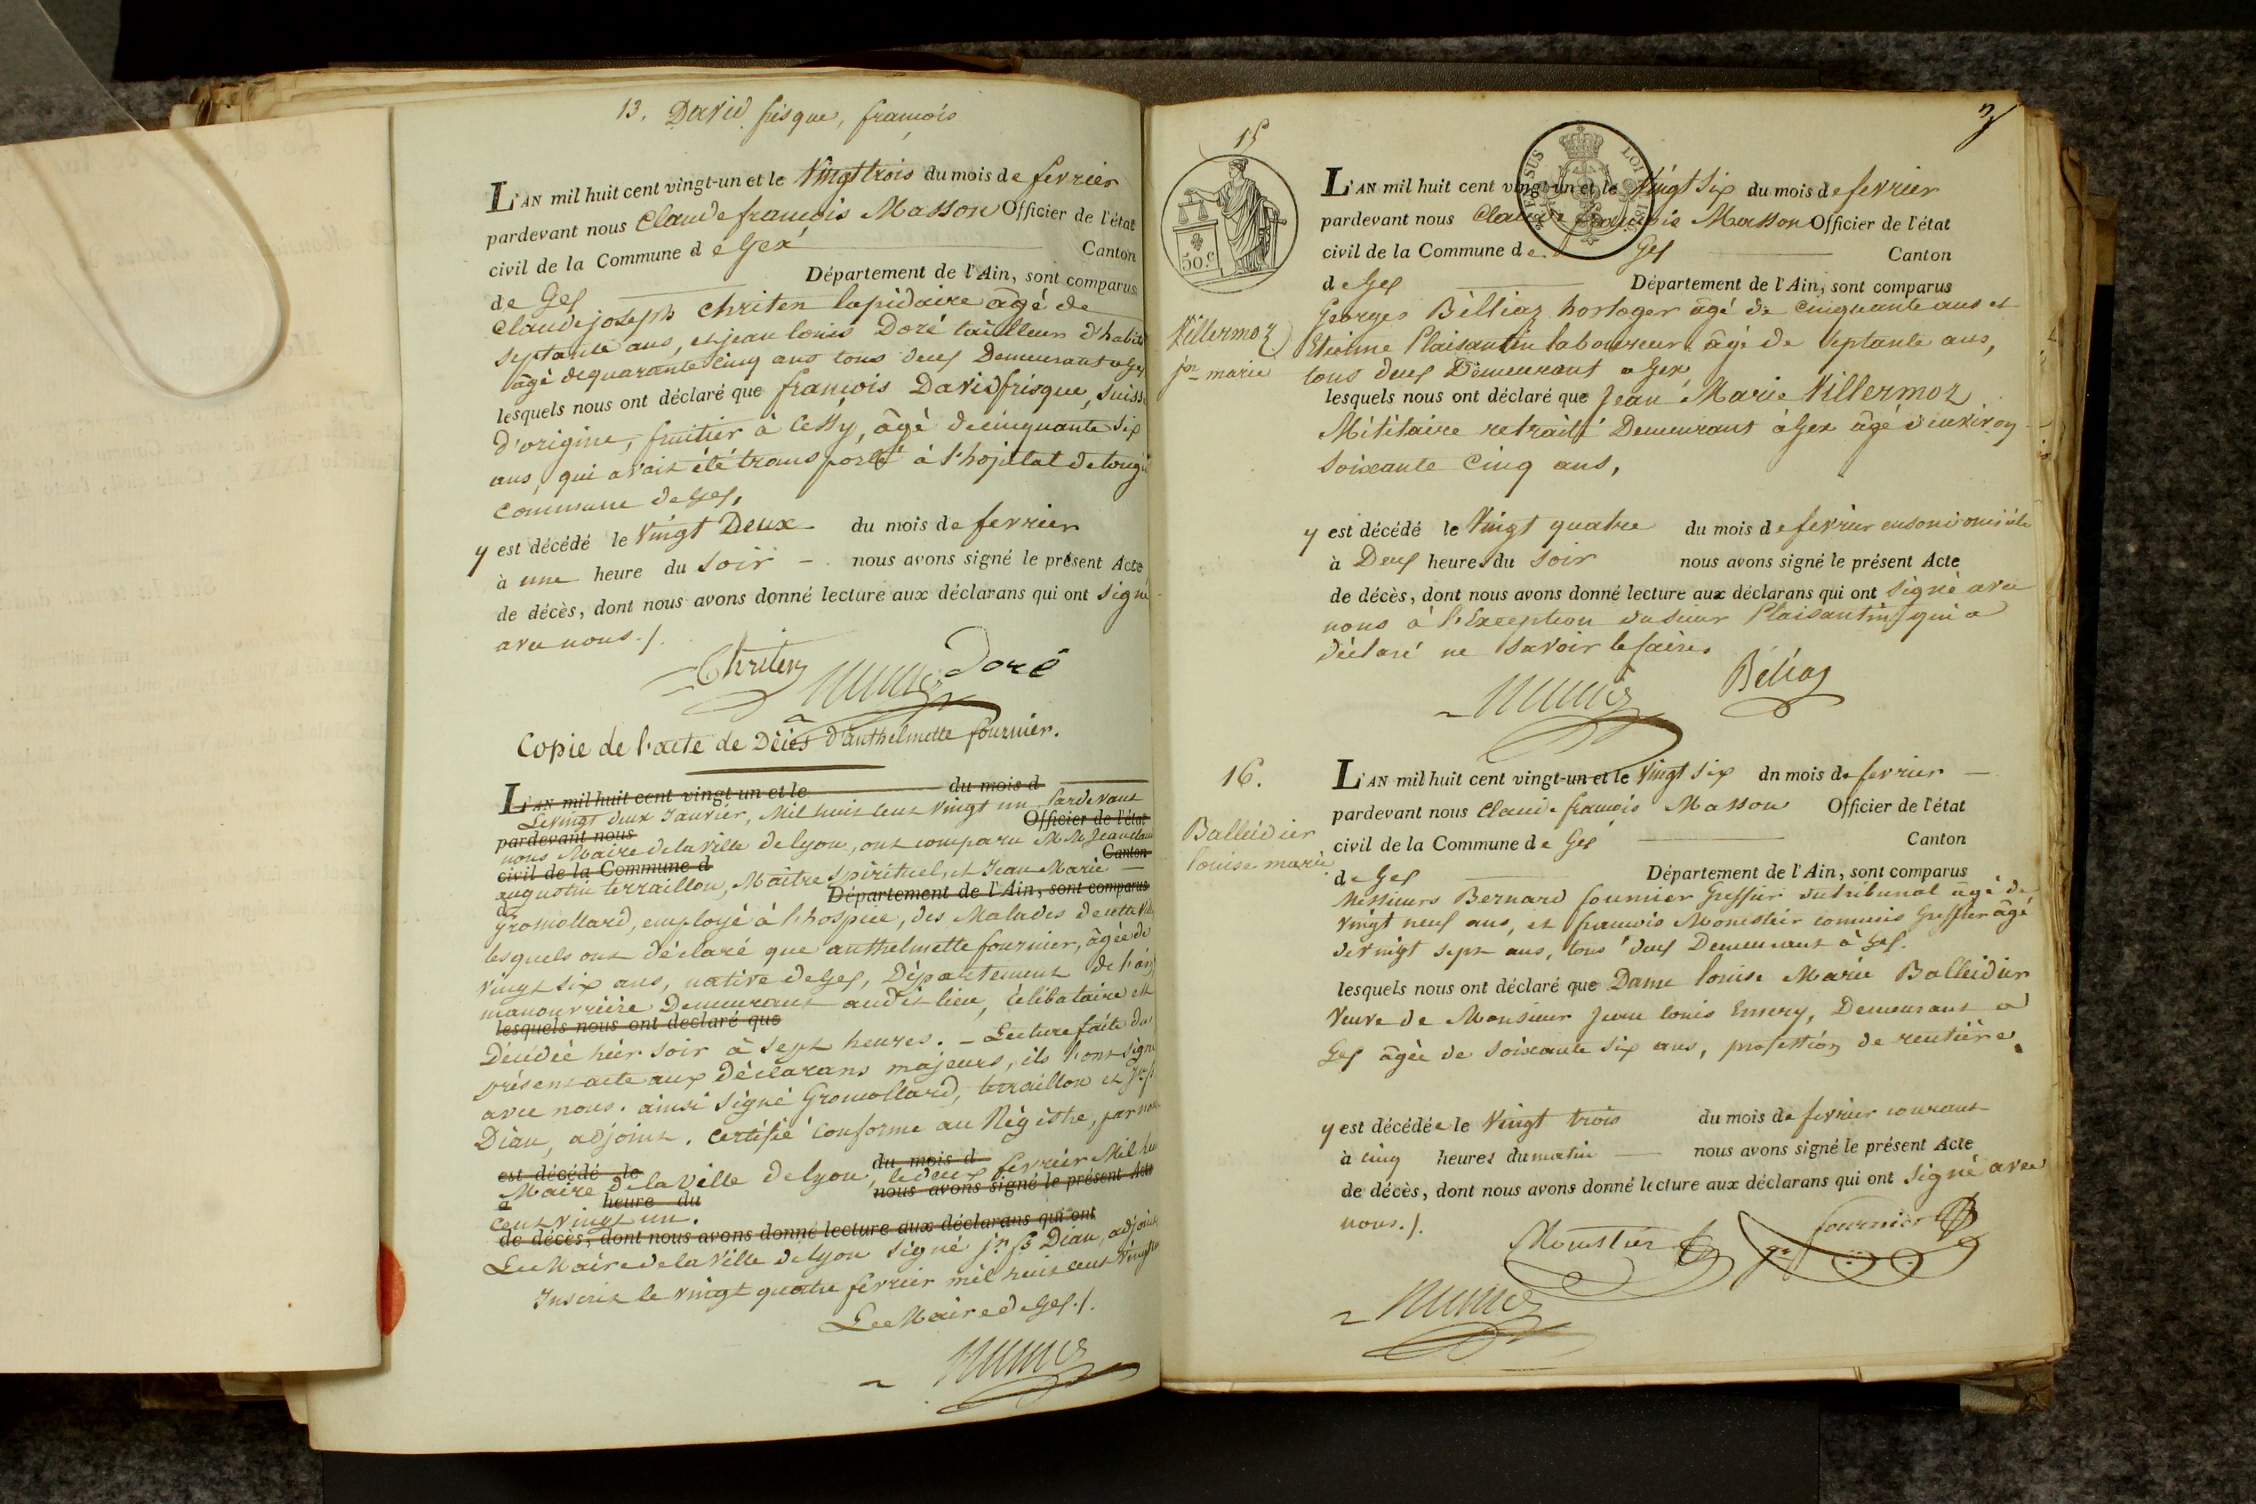 13. David frisque, françois
L'AN mil huit cent vingt-un et le vingt trois du mois de fevrier
pardevant nous Claude françois Masson Officier de l'état
civil de la Commune de Gex Canton
de Gex Département de l'Ain, sont comparus
Claude joseph Chriten lapidaire âgé de
septante ans, et jean louis Doré tailleur d'habits
âgé de quarante cinq ans tous deux Demeurant a Gex
lesquels nous ont déclaré que françois David frisque, suisse
d'origine, fruitier à Cessy, âgé de cinquante six
ans, qui avait été transporté à l'hopital de tougin
commune de Gex,
y est décédé le Vingt Deux du mois de fevrier
à une heure du soir nous avons signé le présent Acte
de décès, dont nous avons donné lecture aux déclarans qui ont signé
avec nous ./.
Chriten Doré
Copie de l'acte de Décès d'anthelmette fournier.
L'AN mil huit cent vingt-un et le du mois d
Le vingt deux Janvier, Mil huit cent vingt un, Pardevant
pardevant nous Officier de l'état
nous Maire de la ville de Lyon, ont comparu MM. Jean claude
civil de la Commune d Canton
augustin terraillon, Maître spirituel, et Jean Marie
de Département de l'Ain, sont comparus
Gromollard, employé à l'hospice, des Malades de cette ville
lesquels ont déclaré que anthelmette fournier, âgée de
vingt six ans, native de Gex, Département de l'ain
manouvrière Demeurant audit lieu, célibataire est
lesquels nous ont déclaré que
Décédée hier soir à sept heures. - Lecture faite du
présent acte aux déclarans majeurs, ils l'ont signé
avec nous. ainsi signé Gromollard, terraillon et
Dian, adjoint. Certifié conforme au Régistre, par nous
est décédé le du mois d
Maire de la Ville de Lyon, le deux fevrier Mil huit
à heure du nous avons signé le présent Acte
cent vingt un.
de décès, dont nous avons donné lecture aux déclarans qui ont
Le Maire de la Ville de Lyon signé Dian, adjoint
Inscrit le vingt quatre fevrier mil huit cent vingt un
Le Maire de Gex ./.
15
50.c
LOI
Villermoz
jn marie
L'AN mil huit cent vingt-un et le Vingt six du mois de fevrier
pardevant nous Claude françois Masson Officier de l'état
civil de la Commune de Gex Canton
de Gex Département de l'Ain, sont comparus
Georges Belliaz horloger âgé de cinquante ans et
Etienne Plaisantin laboureur âgé de septante ans,
tous deux Demeurant a Gex
lesquels nous ont déclaré que Jean Marie Villermoz
Militaire retraité Demeurant à Gex âgé d'environ
soixante cinq ans,
y est décédé le Vingt quatre du mois de fevrier en son domicile
à Deux heures du soir nous avons signé le présent Acte
de décès, dont nous avons donné lecture aux déclarans qui ont signé avec
nous à l'Exception du sieur Plaisantin qui a
déclaré ne savoir le faire.
Béliaz
16.
Balleidier
louise marie
L'AN mil huit cent vingt-un et le vingt six dn mois de fevrier
pardevant nous Claude françois Masson Officier de l'état
civil de la Commune de Gex Canton
de Gex Département de l'Ain, sont comparus
Messieurs Bernard fournier Greffier du tribunal âgé de
vingt neuf ans, et françois Monestier commis Greffier âgé
de vingt sept ans, tous deux Demeurant à Gex.
lesquels nous ont déclaré que Dame louise Marie Balleidier
Veuve de Monsieur Jean louis Emery, Demeurant a
Gex âgée de soixante six ans, profession de rentière.
y est décédée le Vingt trois du mois de fevrier courant
à cinq heures du matin nous avons signé le présent Acte
de décès, dont nous avons donné lecture aux déclarans qui ont signé avec
nous ./.
Monestier fournier